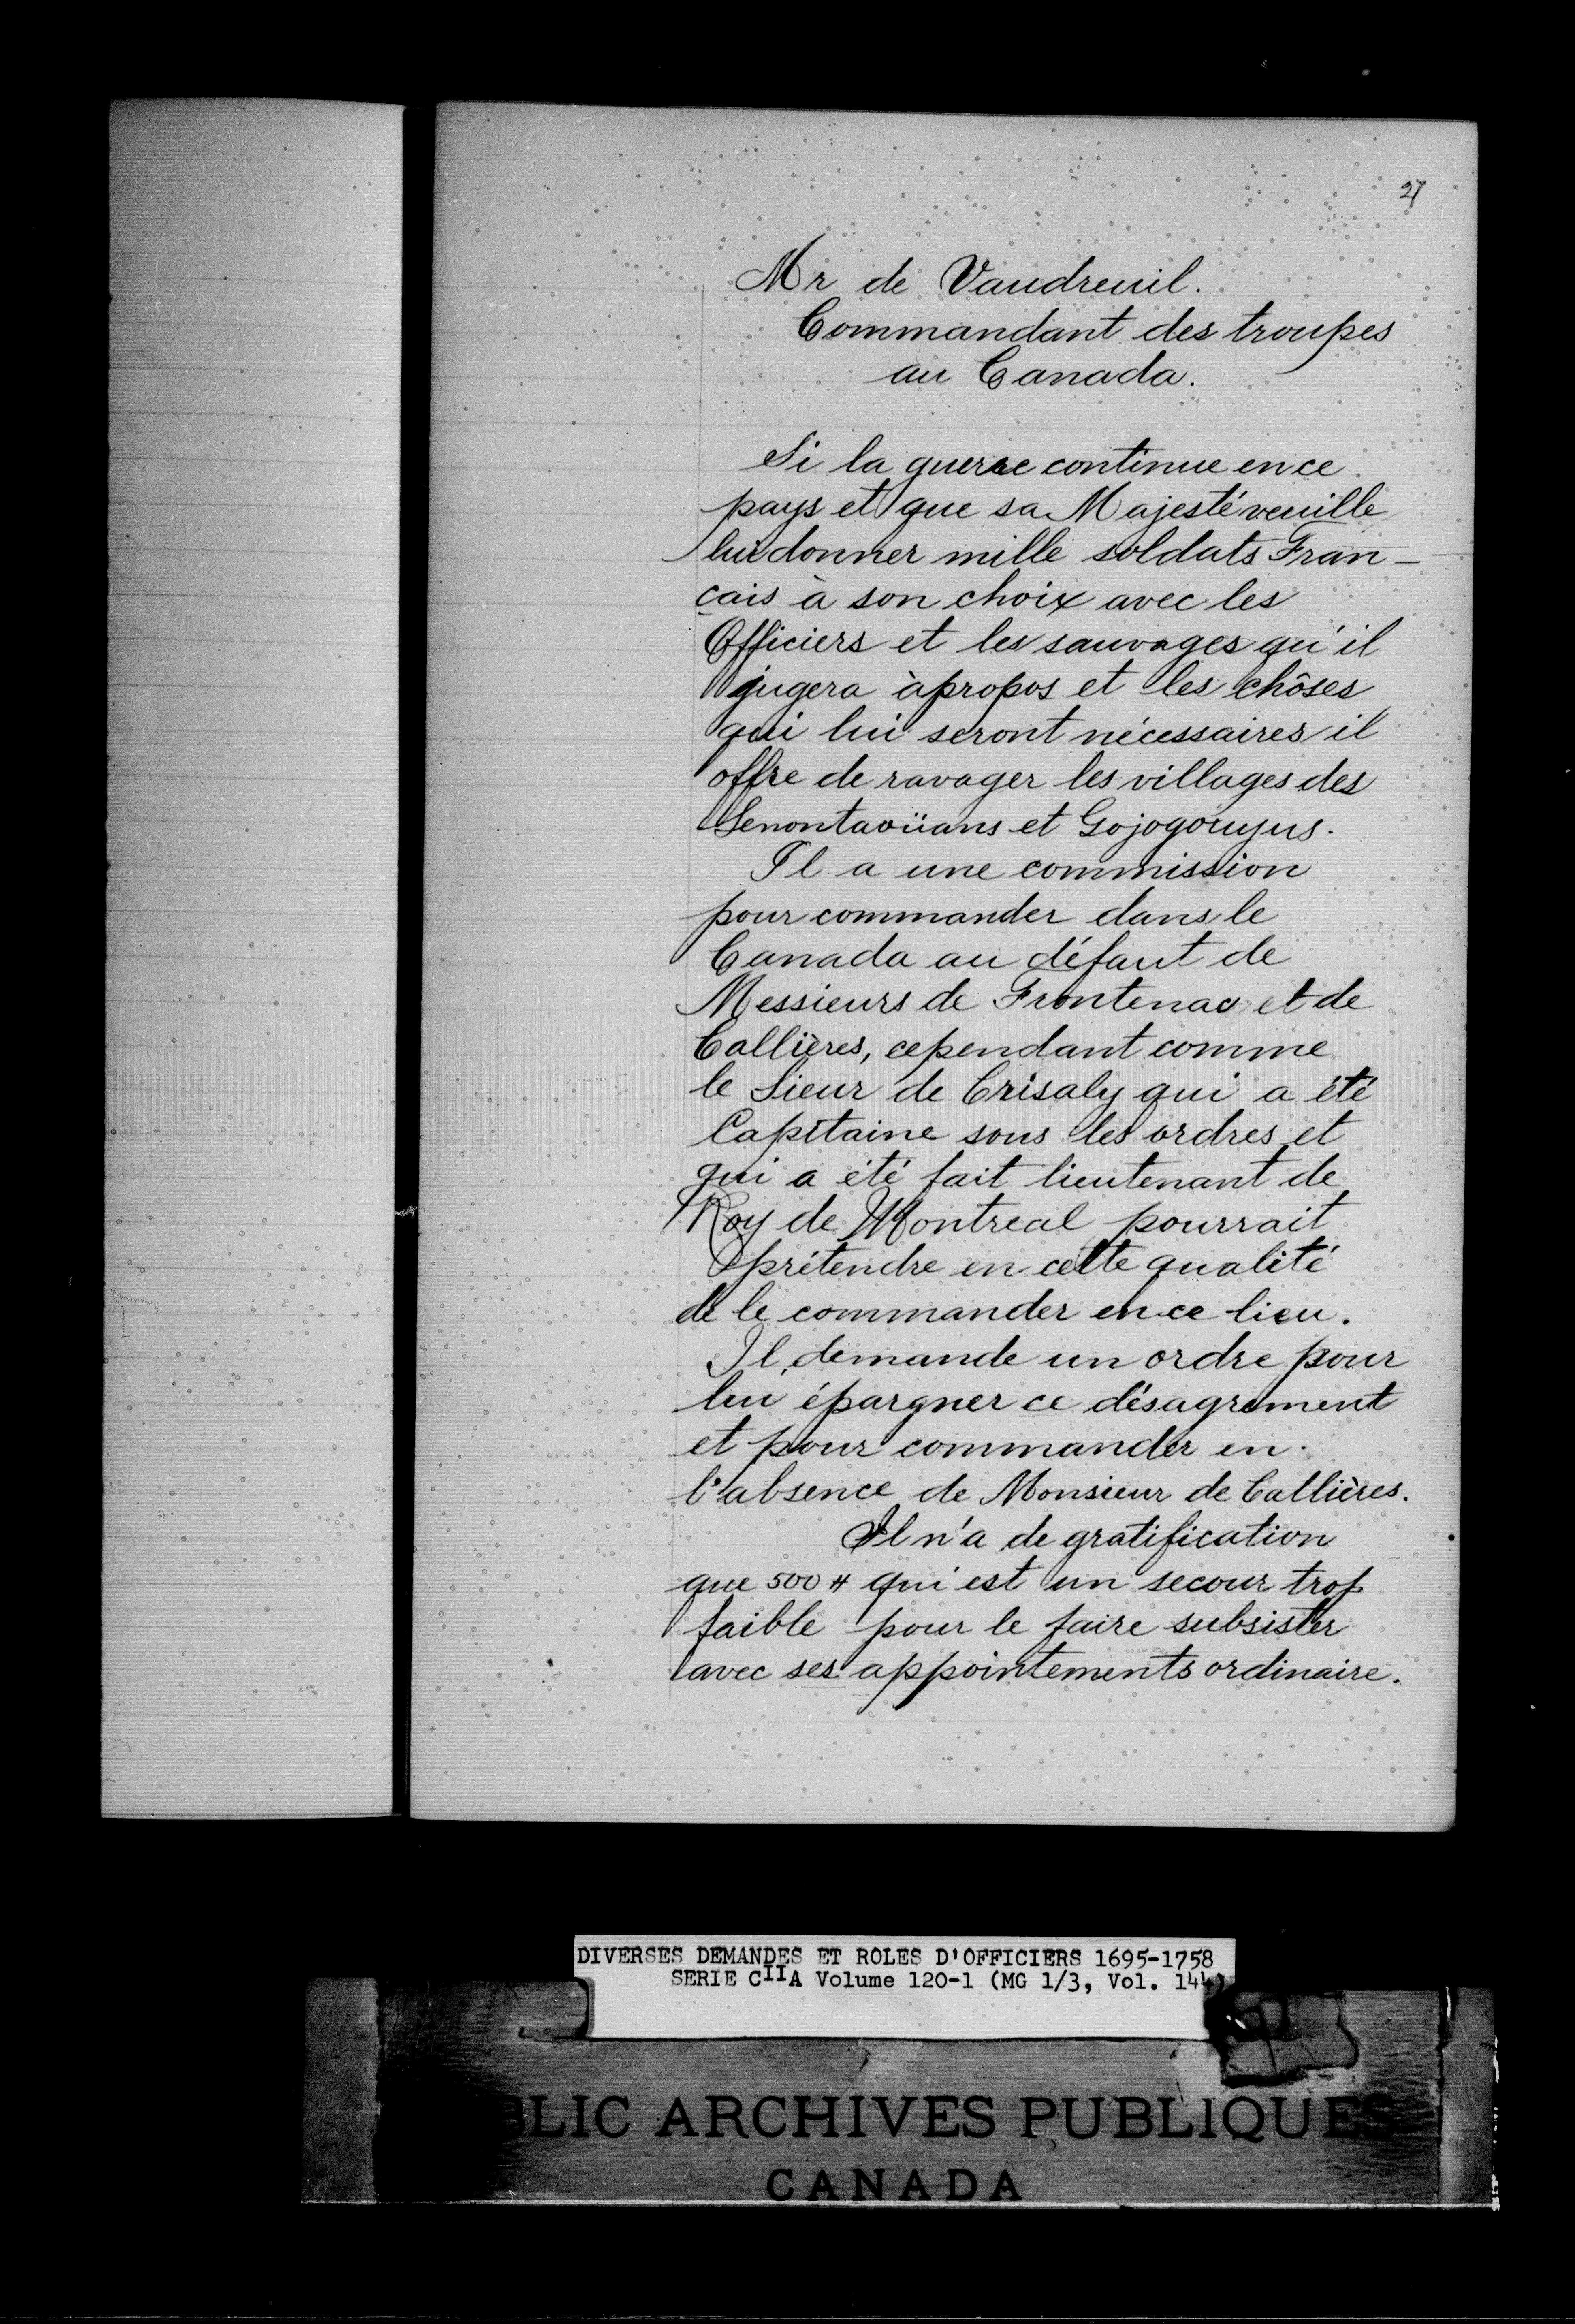 27
Mr de Vaudreuil.
Commandant des troupes
au Canada.
Si la guerre continue en ce
pays et que sa Majesté veuille
lui donner mille soldats Fran-
çais à son choix avec les
Officiers et les sauvages qu'il
jugera àpropos et les chôses
qui lui seront nécessaires il
offre de ravager les villages des
Senontaoüans et Gojogouyus.
Il a une commission
pour commander dans le
Canada au défaut de
Messieurs de Frontenac et de
Callières, cependant comme
le Sieur de Crisaly qui a été
Capitaine sous les ordres et
qui a été fait lieutenant de
Roy de Montreal pourrait
prétendre en cette qualité
de le commander en ce lieu.
Il demande un ordre pour
lui épargner ce désagrement
et pour commander en
l'absence de Monsieur de Callières.
Il n'a de gratification
que 500 # qui est un secour trop
faible pour le faire subsister
avec ses appointements ordinaire.
DIVERSES DEMANDES ET ROLES D'OFFICIERS 1695-1758
SERIE CIIA Volume 120-1 (MG 1/3, Vol. 144)
BLIC ARCHIVES PUBLIQUES
CANADA